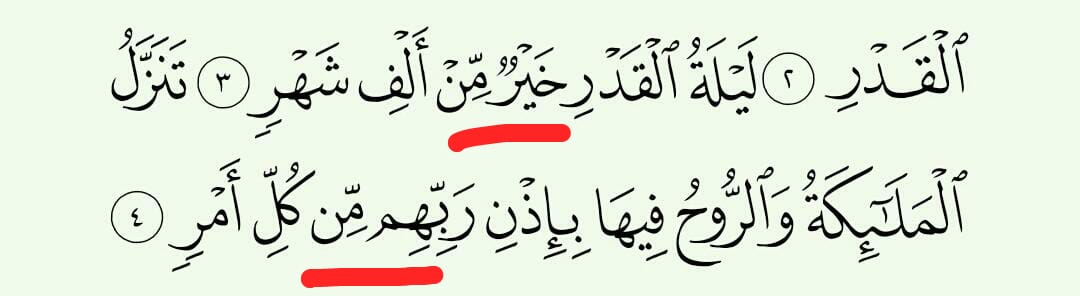 ٱلْقَدْرِ ٢ لَيْلَةُ ٱلْقَدْرِ خَيْرٌ مِّنْ أَلْفِ شَهْرٍ ٣ تَنَزَّلُ
ٱلْمَلَـٰٓئِكَةُ وَٱلرُّوحُ فِيهَا بِإِذْنِ رَبِّهِم مِّن كُلِّ أَمْرٍ ٤